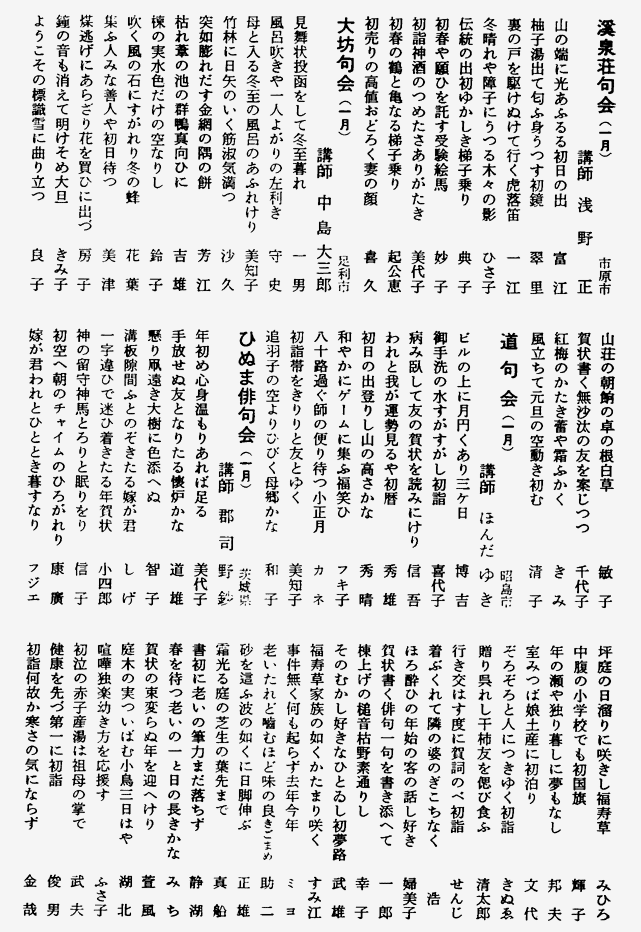 溪泉荘句会（一月）
市原市
講師　浅野　正
山の端に光あふるる初日の出　富江
柚子湯出て匂ふ身うつす初鏡　翠里
裏の戸を駆けぬけて行く虎落笛　一江
冬晴れや障子にうつる木々の影　ひさ子
伝統の出初ゆかしき梯子乗り　典子
初春や願ひを託す受験絵馬　妙子
初詣神酒のつめたさありがたき　美代子
初春の鶴と亀なる梯子乗り　起公恵
初売りの高値おどろく妻の顔　喜久
大坊句会（一月）
足利市
講師　中島　大三郎
見舞状投函をして冬至暮れ　一男
風呂吹きや一人よがりの左利き　守史
母と入る冬至の風呂のあふれけり　美知子
竹林に日矢のいく筋淑気満つ　沙久
突如膨れだす金網の隅の餅　芳江
枯れ葦の池の群鴨真向ひに　吉雄
楝の実水色だけの空なりし　鈴子
吹く風の石にすがれり冬の蜂　花葉
集ふ人みな善人や初日待つ　美津
煤逃げにあらざり花を買ひに出づ　房子
鐘の音も消えて明けそめ大旦　きみ子
ようこその標識雪に曲り立つ　良子
山荘の朝餉の卓の根白草　敏子
賀状書く無沙汰の友を案じつつ　千代子
紅梅のかたき蕾や霜ふかく　きみ
風立ちて元旦の空動き初む　清子
道句会（一月）
昭島市
講師　ほんだ　ゆき
ビルの上に月円くあり三ケ日　博吉
御手洗の水すがすがし初詣　喜代子
病み臥して友の賀状を読みにけり　信吾
われと我が運勢見るや初暦　秀雄
初日の出登りし山の高さかな　秀晴
和やかにゲームに集ふ福笑ひ　フキ子
八十路過ぐ師の便り待つ小正月　カネ
初詣帯をきりりと友とゆく　美知子
追羽子の空よりひびく母郷かな　和子
ひぬま俳句会（一月）
茨城県
講師　郡司　野鈔
年初め心身温もりあれば足る　美代子
手放せぬ友となりたる懐炉かな　道雄
懸り凧遠き大樹に色添へぬ　智子
溝板隙間ふとのぞきたる嫁が君　しげ
一字違ひで迷ひ着きたる年賀状　小四郎
神の留守神馬とろりと眠りをり　信子
初空へ朝のチャイムのひろがれり　康廣
嫁が君われとひととき暮すなり　フジエ
坪庭の日溜りに咲きし福寿草　みひろ
中腹の小学校でも初国旗　輝子
年の瀬や独り暮しに夢もなし　邦夫
室みつば娘土産に初泊り　文代
ぞろぞろと人につきゆく初詣　きぬゑ
贈り呉れし干柿友を偲び食ふ　清太郎
行き交はす度に賀詞のべ初詣　せんじ
着ぶくれて隣の婆のぎこちなく　浩
ほろ酔ひの年始の客の話し好き　婦美子
賀状書く俳句一句を書き添へて　一郎
棟上げの槌音枯野素通りし　幸子
そのむかし好きなひとゐし初夢路　武雄
福寿草家族の如くかたまり咲く　すみ江
事件無く何も起らず去年今年　ミヨ
老いたれど噛むほど味の良きごまめ　助二
砂を這ふ波の如くに日脚伸ぶ　正雄
霜光る庭の芝生の葉先まで　真船
書初に老いの筆力まだ落ちず　静湖
春を待つ老いの一と日の長きかな　みち
賀状の束変らぬ年を迎へけり　萱風
庭木の実ついばむ小鳥三日はや　湖北
喧嘩独楽幼き方を応援す　ふさ子
初泣の赤子産湯は祖母の掌で　武夫
健康を先づ第一に初詣　俊男
初詣何故か寒さの気にならず　金哉